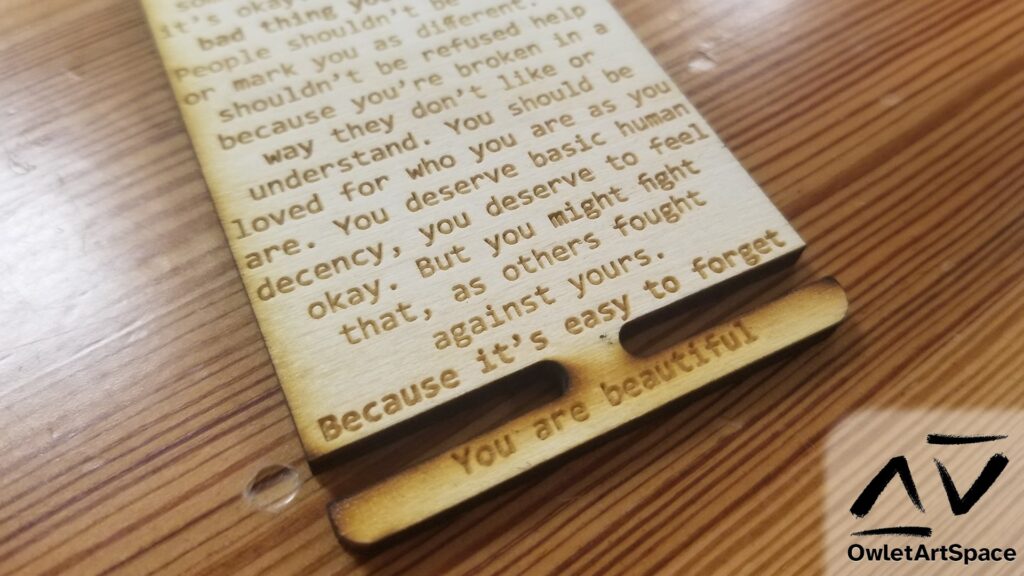 it's okay.
bad thing you
People shouldn't be
or mark you as different.
shouldn't be refused help
because you're broken in a
way they don't like or
understand. You should be
loved for who you are as you
are. You deserve basic human
decency, you deserve to feel
okay. But you might fight
that, as others fought
against yours.
Because it's easy to forget
You are beautiful
OwletArtSpace